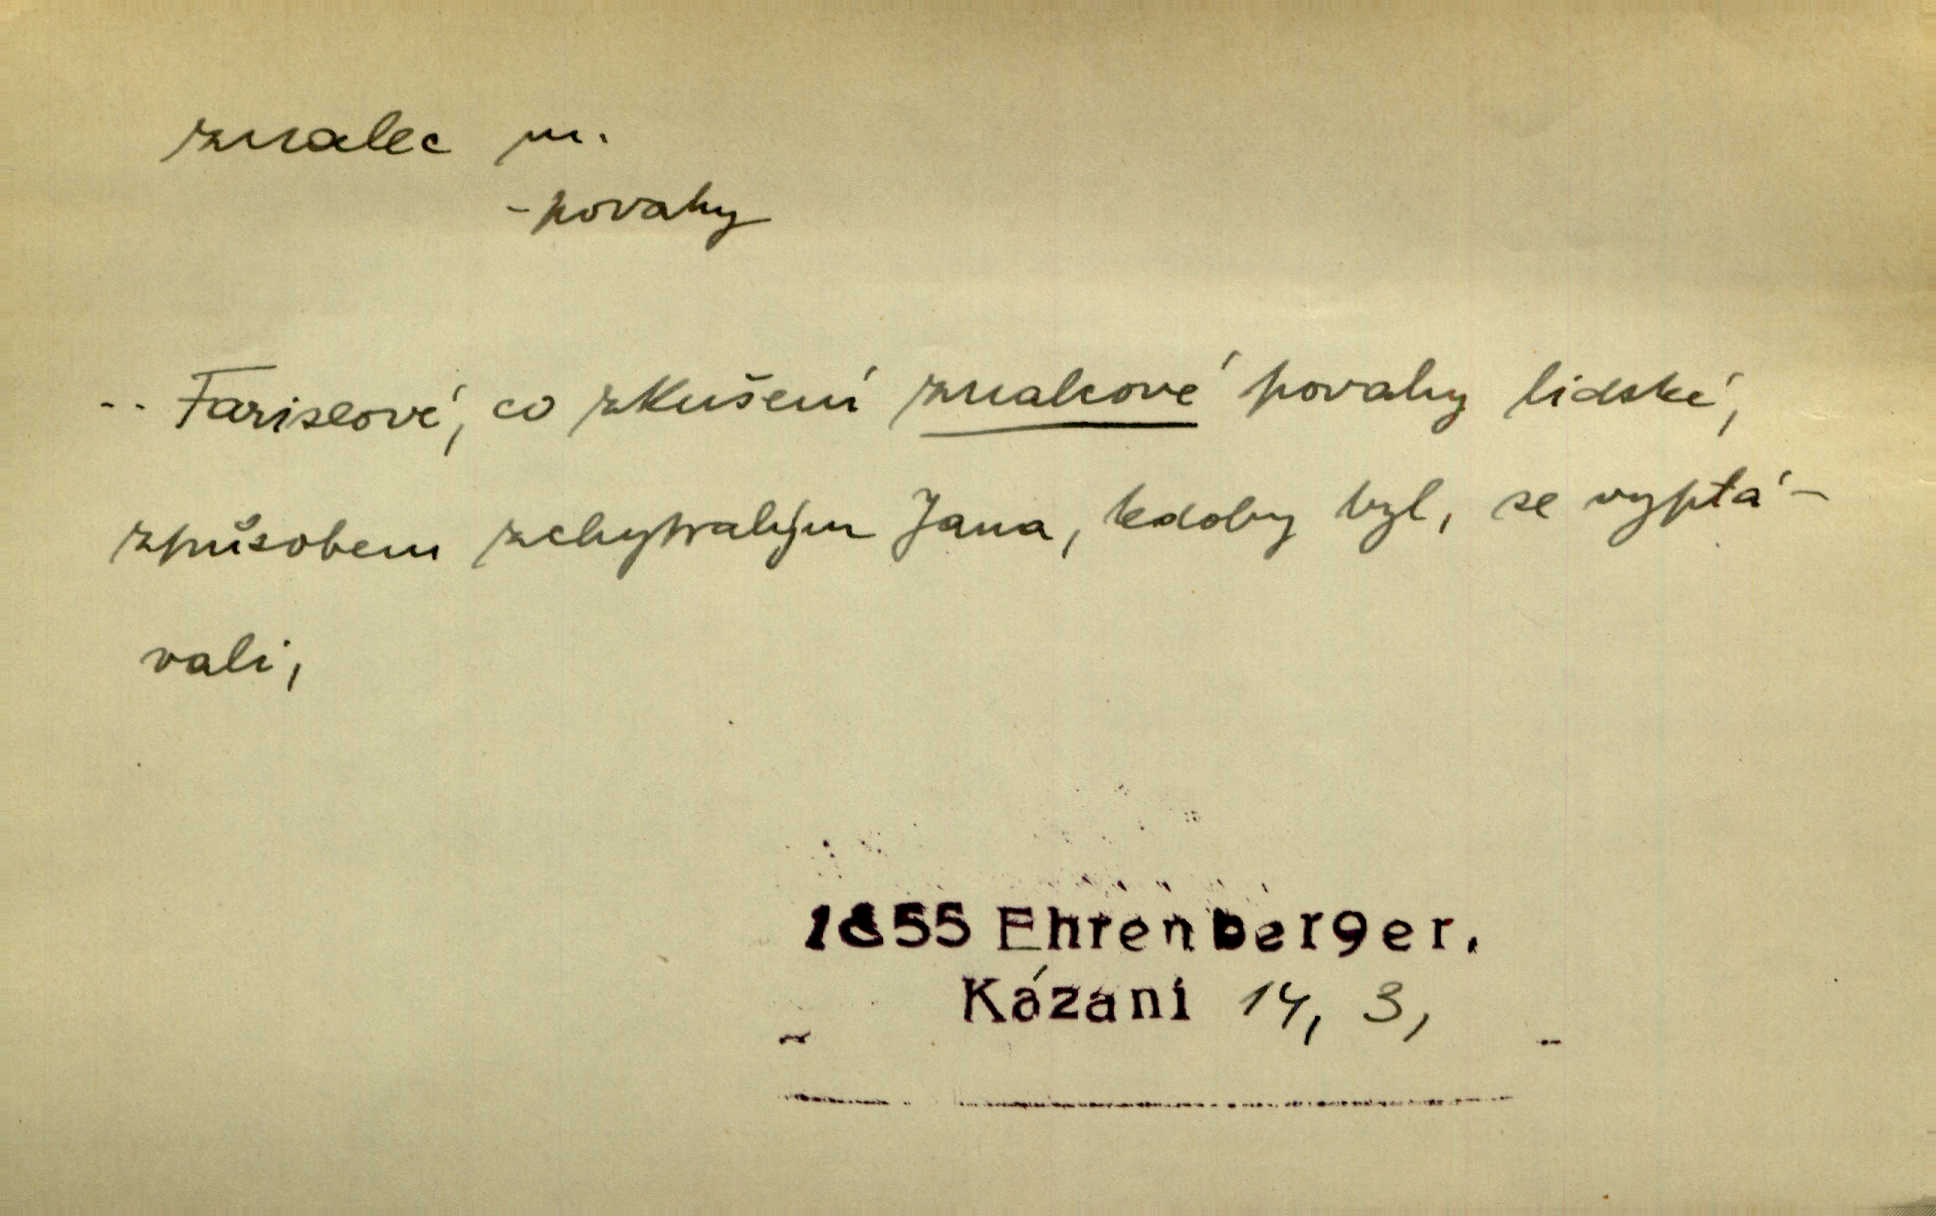 znalec m.
- povahy
-- Fariseové, co zkušení znalcové povahy lidské,
způsobem zchytralým Jana, kdoby byl, se vyptá-
vali,
1855 Ehrenberger.
Kázaní 14, 3,